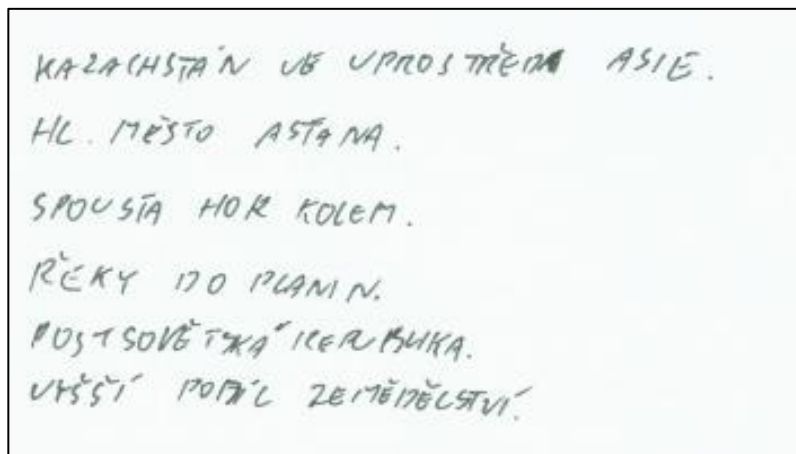 KAZACHSTÁN VE UPROSTŘED ASIE.
HL. MĚSTO ASTANA.
SPOUSTA HOR KOLEM.
ŘEKY DO PLANIN.
POSTSOVĚTSKÁ REPUBLIKA.
VYŠŠÍ PODÍL ZEMĚDĚLSTVÍ.